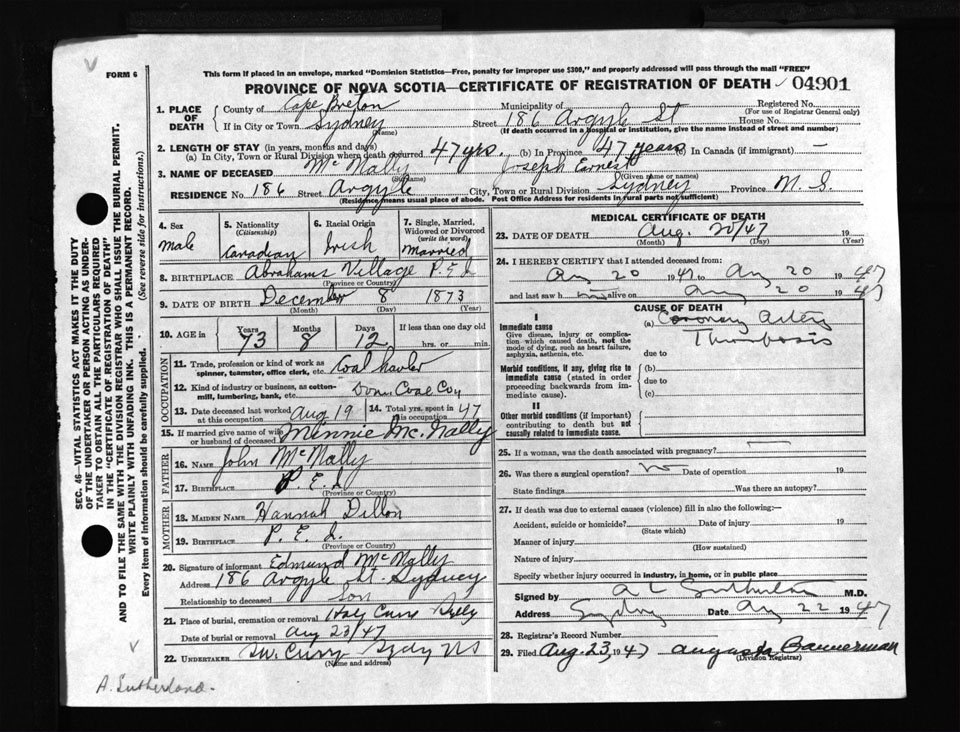 FORM 6
This form if placed in an envelope, marked "Dominion Statistics—Free, penalty for improper use $300," and properly addressed will pass through the mail "FREE"
PROVINCE OF NOVA SCOTIA—CERTIFICATE OF REGISTRATION OF DEATH 04901
SEC. 46—VITAL STATISTICS ACT MAKES IT THE DUTY
OF THE UNDERTAKER OR PERSON ACTING AS UNDER-
TAKER TO OBTAIN ALL THE PARTICULARS REQUIRED
IN THE "CERTIFICATE OF REGISTRATION OF DEATH"
AND TO FILE THE SAME WITH THE DIVISION REGISTRAR WHO SHALL ISSUE THE BURIAL PERMIT.
WRITE PLAINLY WITH UNFADING INK. THIS IS A PERMANENT RECORD.
Every item of information should be carefully supplied. (See reverse side for instructions.)
1. PLACE OF DEATH
County of Cape Breton Municipality of Registered No.
(For use of Registrar General only)
If in City or Town Sydney Street 186 Argyle St House No.
(Name) (If death occurred in a hospital or institution, give the name instead of street and number)
2. LENGTH OF STAY (in years, months and days)
(a) In City, Town or Rural Division where death occurred 47 yrs. (b) In Province 47 years (c) In Canada (if immigrant) —
3. NAME OF DECEASED Mc Nally Joseph Ernest
(Surname) (Given name or names)
RESIDENCE No. 186 Street Argyle City, Town or Rural Division Sydney Province N. S.
(Residence means usual place of abode. Post Office Address for residents in rural parts not sufficient)
4. Sex
male
5. Nationality
(Citizenship)
Canadian
6. Racial Origin
Irish
7. Single, Married, Widowed or Divorced
(write the word)
Married
8. BIRTHPLACE Abrahams Village P.E.I.
(Province or Country)
9. DATE OF BIRTH December 8 1873
(Month) (Day) (Year)
10. AGE in
Years Months Days If less than one day old
73 8 12 hrs. or min.
OCCUPATION
11. Trade, profession or kind of work as spinner, teamster, office clerk, etc. Coal hauler
12. Kind of industry or business, as cotton-mill, lumbering, bank, etc. Dom Coal Coy
13. Date deceased last worked at this occupation Aug 19
14. Total yrs. spent in this occupation 47
15. If married give name of wife or husband of deceased Minnie Mc. Nally
FATHER
16. NAME John McNally
17. BIRTHPLACE P.E.I.
(Province or Country)
MOTHER
18. MAIDEN NAME Hannah Dillon
19. BIRTHPLACE P.E.I.
(Province or Country)
20. Signature of informant Edmund McNally
Address 186 Argyle St. Sydney
Relationship to deceased Son
21. Place of burial, cremation or removal Holy Cross
Date of burial or removal Aug 23/47
22. UNDERTAKER
(Name and address)
MEDICAL CERTIFICATE OF DEATH
23. DATE OF DEATH Aug. 20/47 19
(Month) (Day) (Year)
24. I HEREBY CERTIFY that I attended deceased from:
Aug 20 1947 to Aug 20 1947
and last saw h im alive on Aug 20 1947
CAUSE OF DEATH
I
Immediate cause
Give disease, injury or complication which caused death, not the mode of dying, such as heart failure, asphyxia, asthenia, etc.
(a) Coronary Artery
Thrombosis
due to
Morbid conditions, if any, giving rise to immediate cause (stated in order proceeding backwards from immediate cause).
(b)
due to
(c)
II
Other morbid conditions (if important) contributing to death but not causally related to immediate cause.
25. If a woman, was the death associated with pregnancy? —
26. Was there a surgical operation? No Date of operation 19
State findings Was there an autopsy?
27. If death was due to external causes (violence) fill in also the following:—
Accident, suicide or homicide? Date of injury 19
(State which)
Manner of injury
(How sustained)
Nature of injury
Specify whether injury occurred in industry, in home, or in public place
Signed by A L Sutherland M.D.
Address Sydney Date Aug 22 1947
28. Registrar's Record Number
29. Filed Aug. 23, 1947 Augusta Bannerman
(Division Registrar)
A. Sutherland.